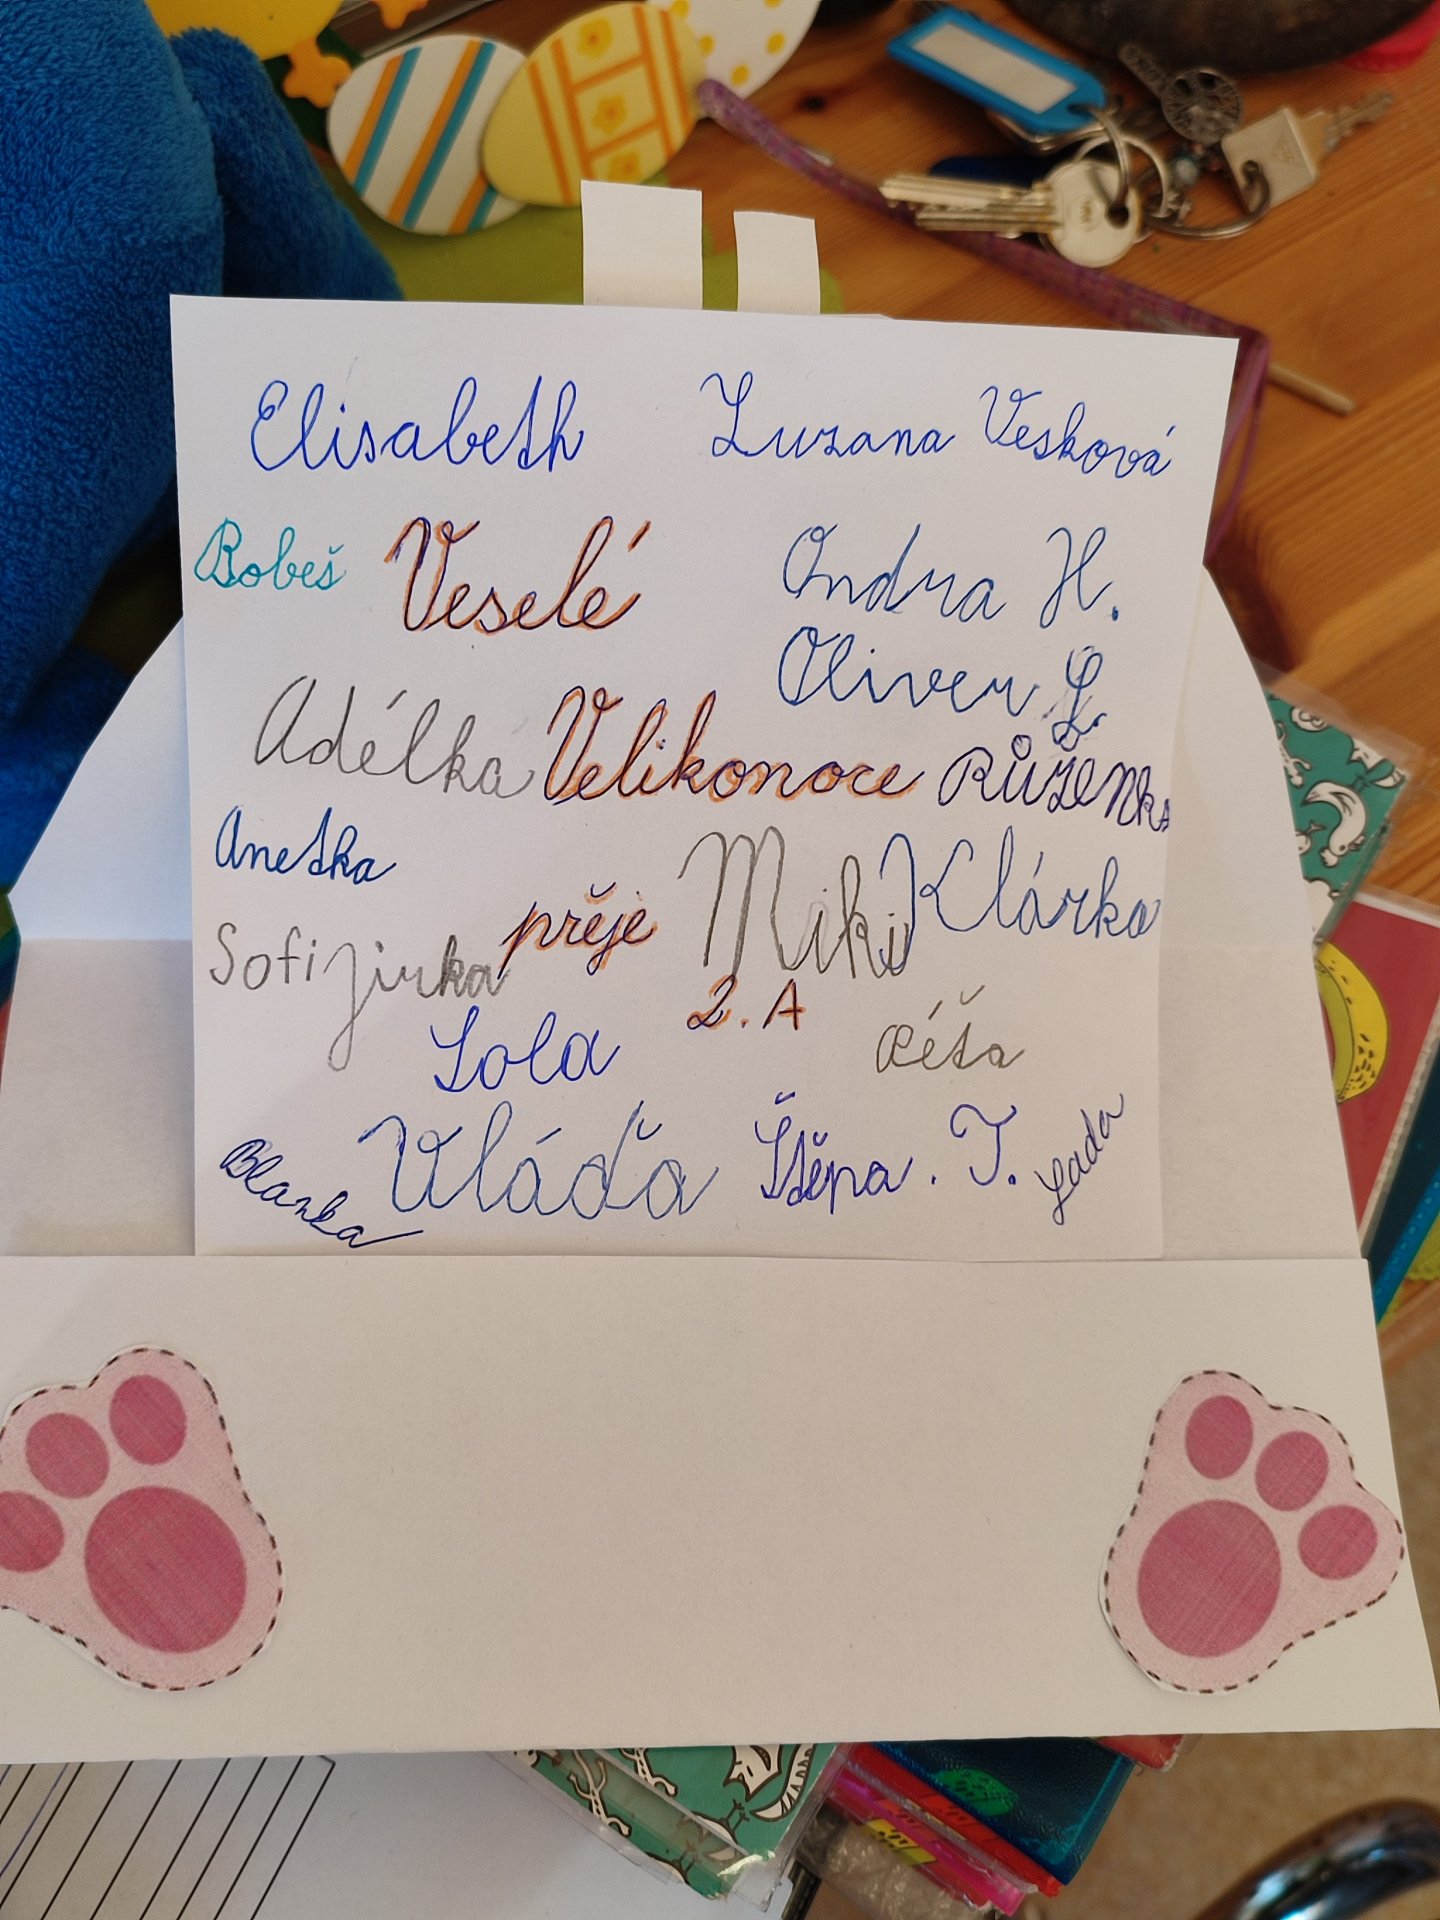 Elisabeth Zuzana Vesková
Bobeš Veselé Ondra H.
Oliver L.
Adélka Velikonoce Růženka
Anetka přeje Miki Klárka
Sofi Jirka 2. A
Lola Péťa
Blanka Vláďa Štěpa. T. Lada